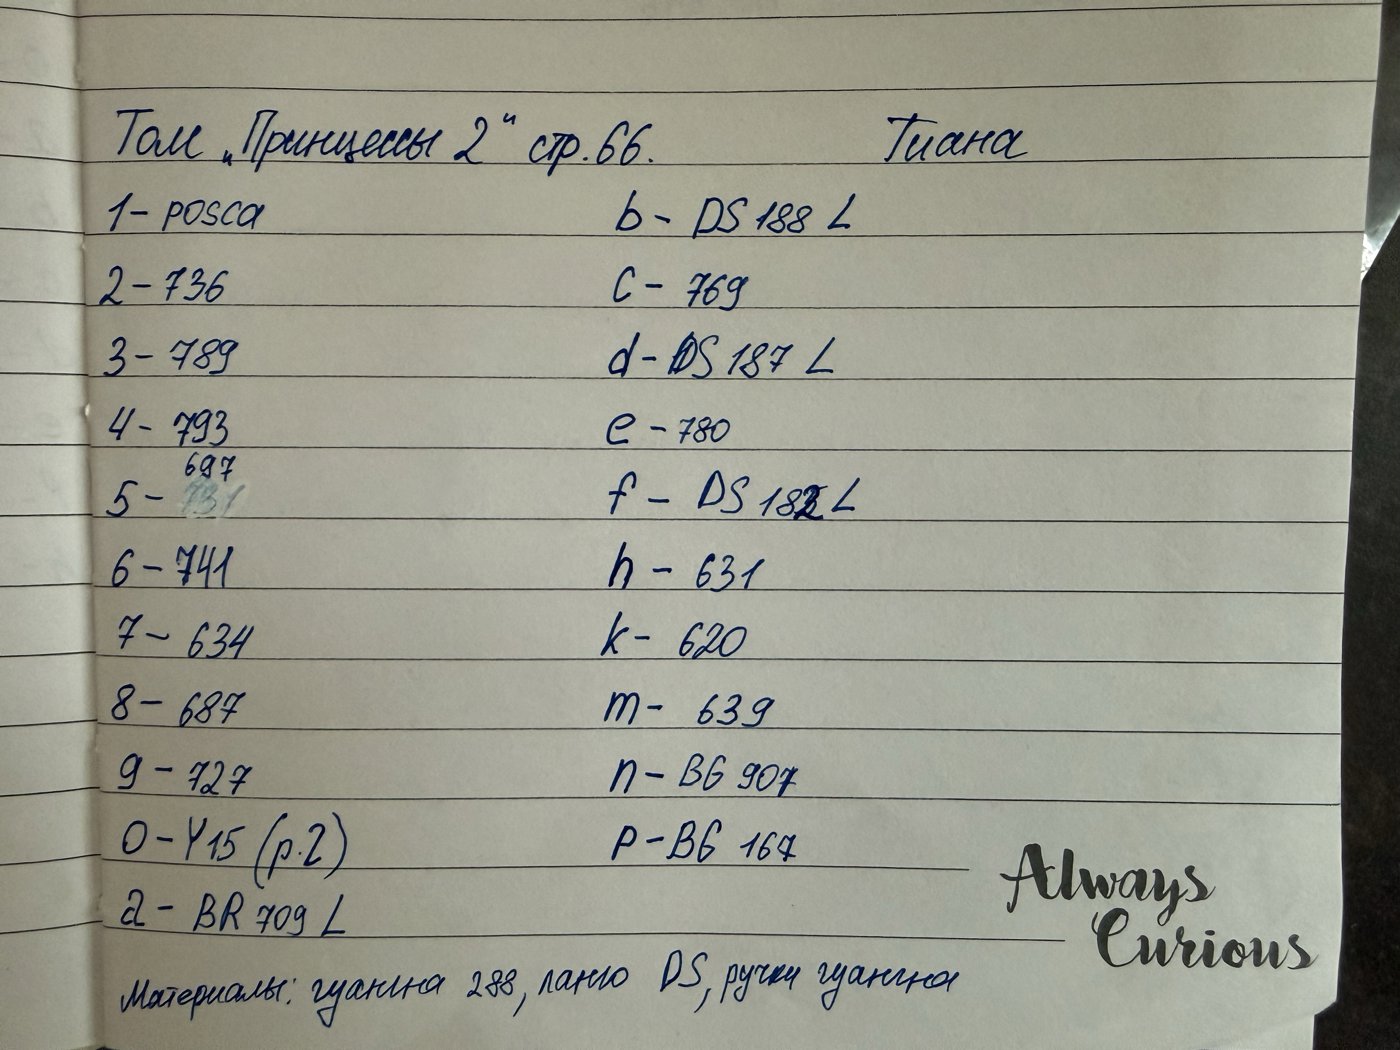 Том „Принцессы 2“ стр. 66. Тиана
1 - POSCA
2 - 736
3 - 789
4 - 793
697
5 - 731
6 - 741
7 - 634
8 - 687
9 - 727
0 - Y15 (p.2)
a - BR 709 L
b - DS 188 L
c - 769
d - DS 187 L
e - 780
f - DS 182 L
h - 631
k - 620
m - 639
n - BG 907
p - BG 167
Always
Curious
Материалы: гуангна 288, ланго DS, ручки гуангна